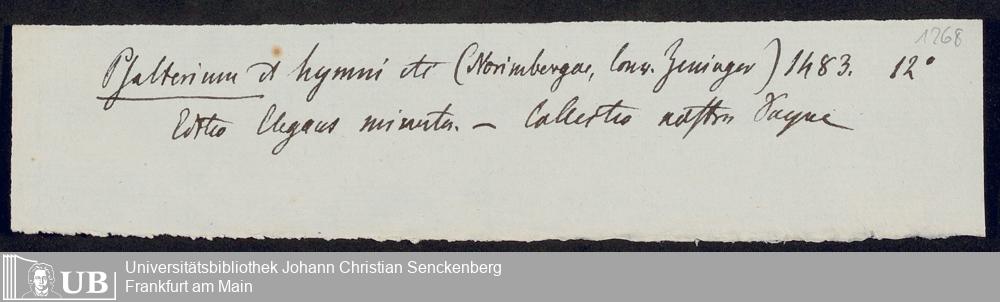 1268
Psalterium et hymni etc (Norimbergae, Conr. Zeninger) 1483. 12°
Editio Elegans minuta. — Collectio nostra
UB Universitätsbibliothek Johann Christian Senckenberg
Frankfurt am Main